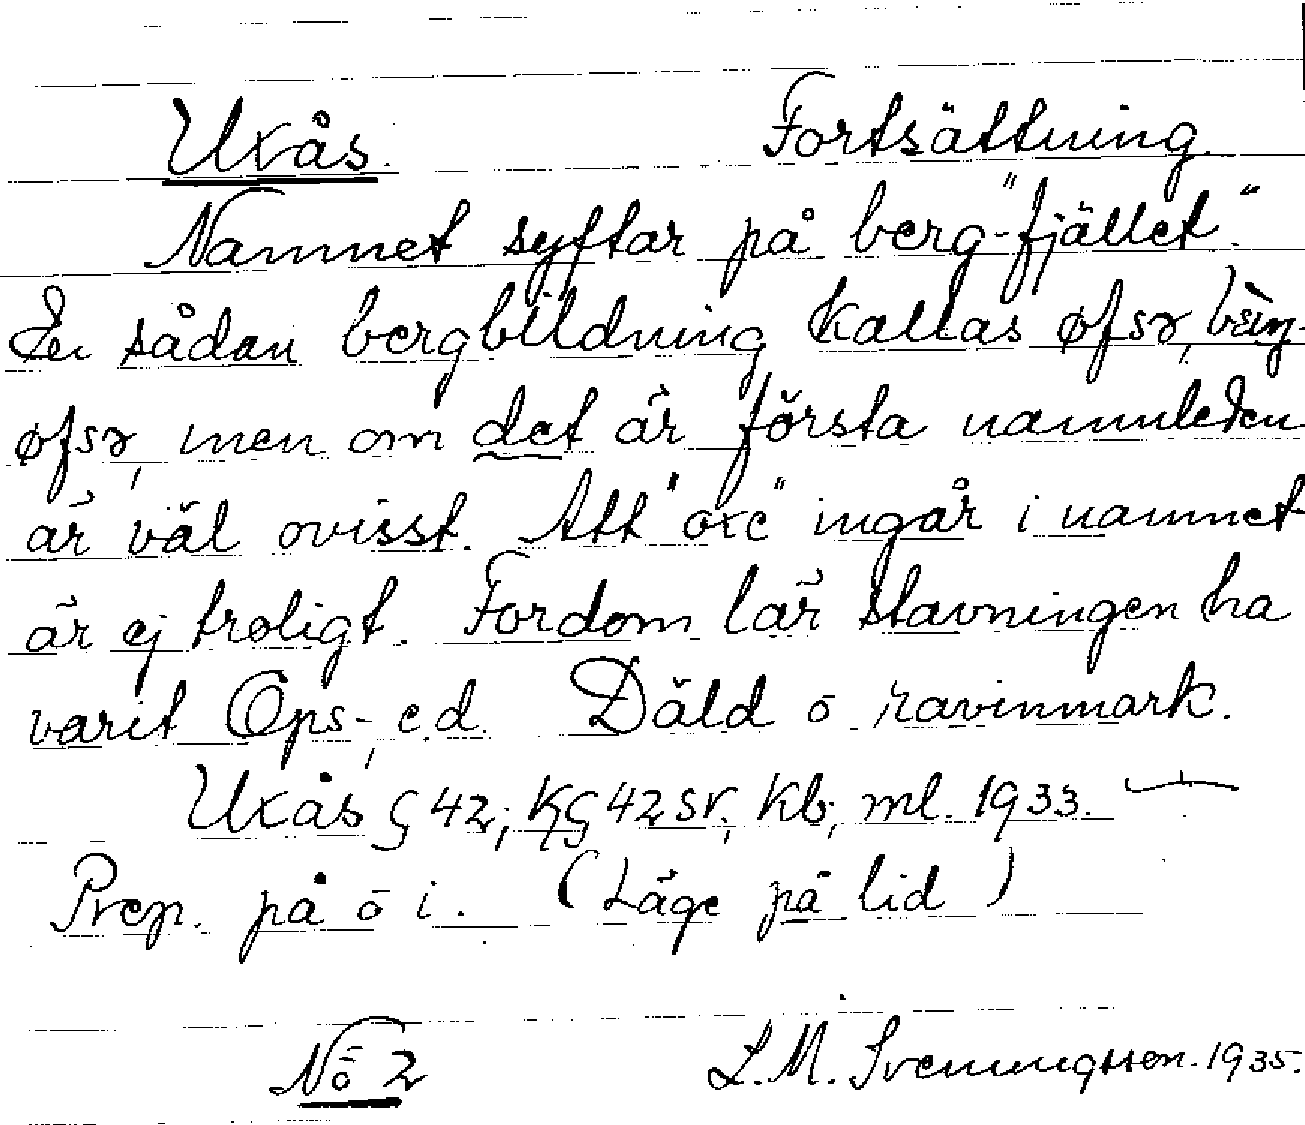 Uxås. Fortsättning
Namnet syftar på berg-"fjället".
En sådan bergbildning kallas øfsr,
øfsr, men om det är första namnleden
är väl ovisst. Att "oxe" ingår i namnet
är ej troligt. Fordom lär stavningen ha
varit Ops-, e.d. Däld o ravinmark.
Uxås § 42; K§ 42 sv; Kb; ml. 1933.
Prep. på o i. (Läge på lid)
No 2 L.M. Svenungsson. 1935.